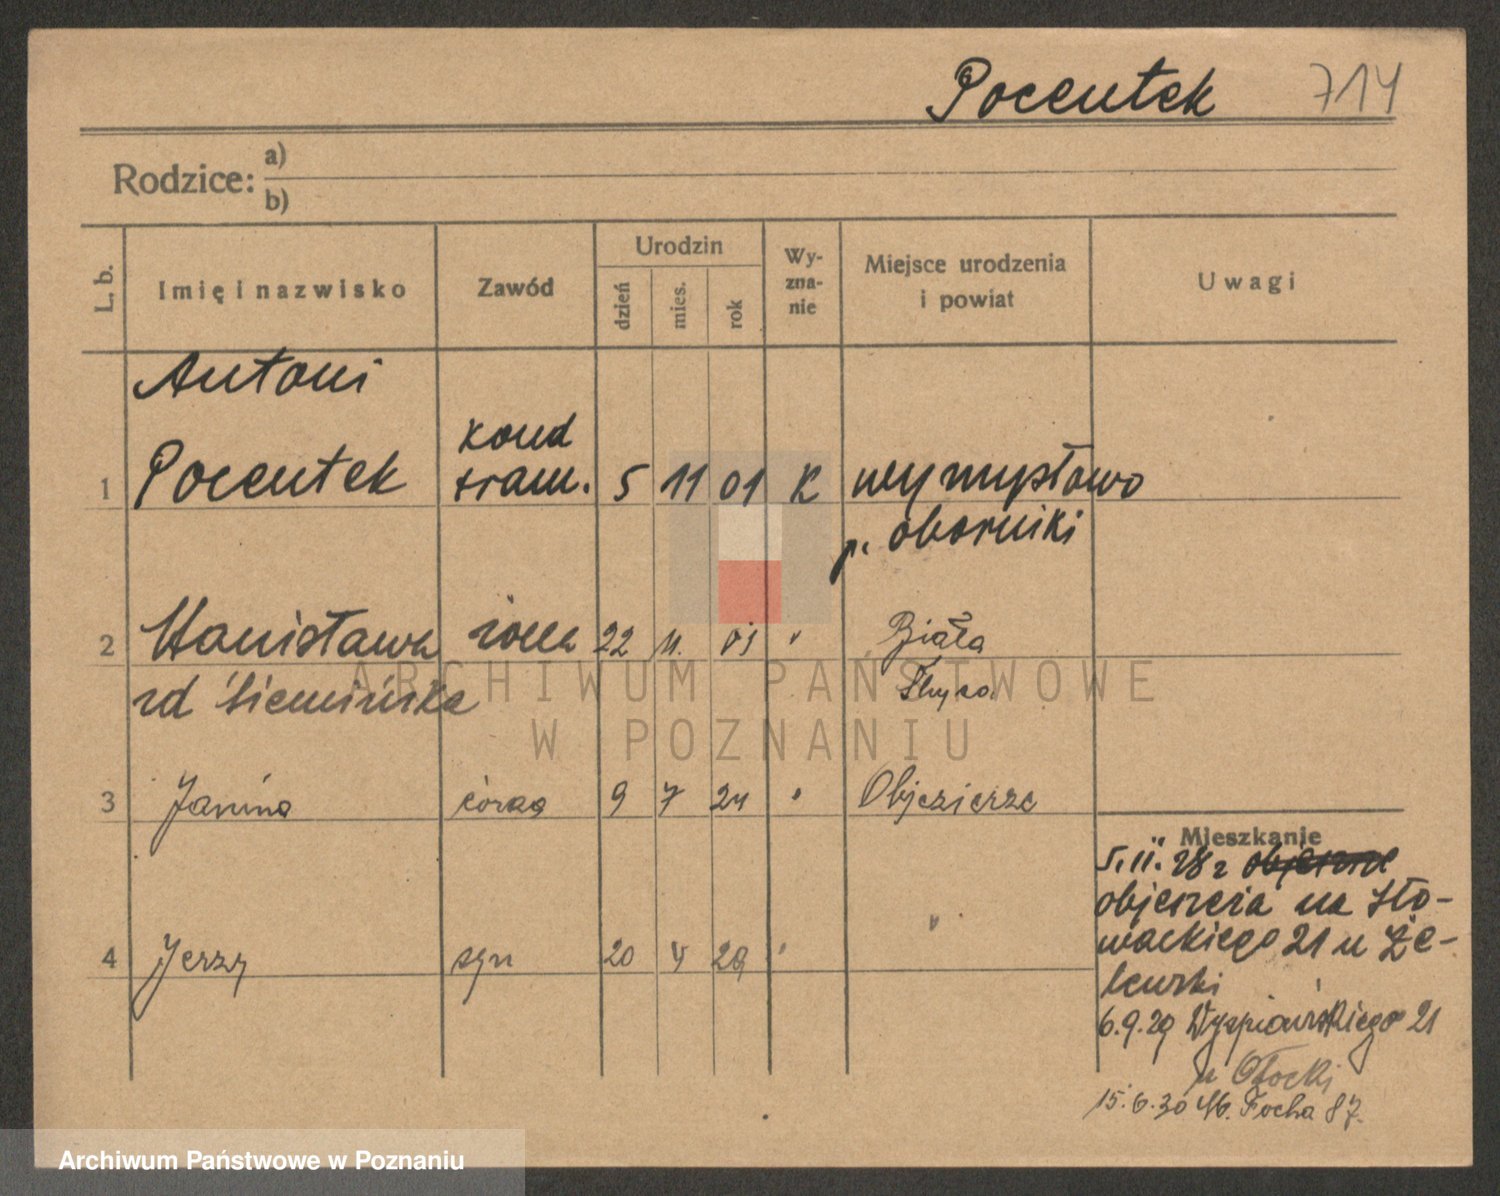 Pocentek 714
Rodzice: a)
b)
L. b.
Imię i nazwisko
Zawód
Urodzin
dzień
mies.
rok
Wy-
zna-
nie
Miejsce urodzenia
i powiat
Uwagi
Antoni
1 Pocentek kond tram. 5 11 01 K wymysłowo
p. oborniki
2 Stanisława żona 22 11. 01 " Biała
zd Siemińska
3 Janina córka 9 7 24 " Objezierze
Mieszkanie
5.11.28 r objezierze
objezierza na Sło-
wackiego 21 u Że-
lewski
4 Jerzy syn 20 4 29 " "
6.9.29 Wyspiańskiego 21
u Otocki
15.6.30 M. Focha 87.
ARCHIWUM PAŃSTWOWE
W POZNANIU
Archiwum Państwowe w Poznaniu